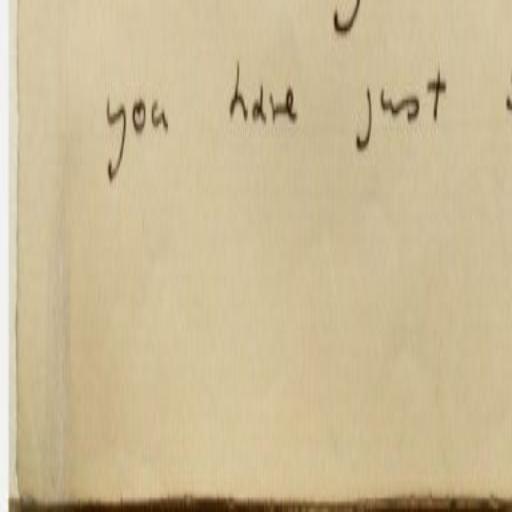 you have just